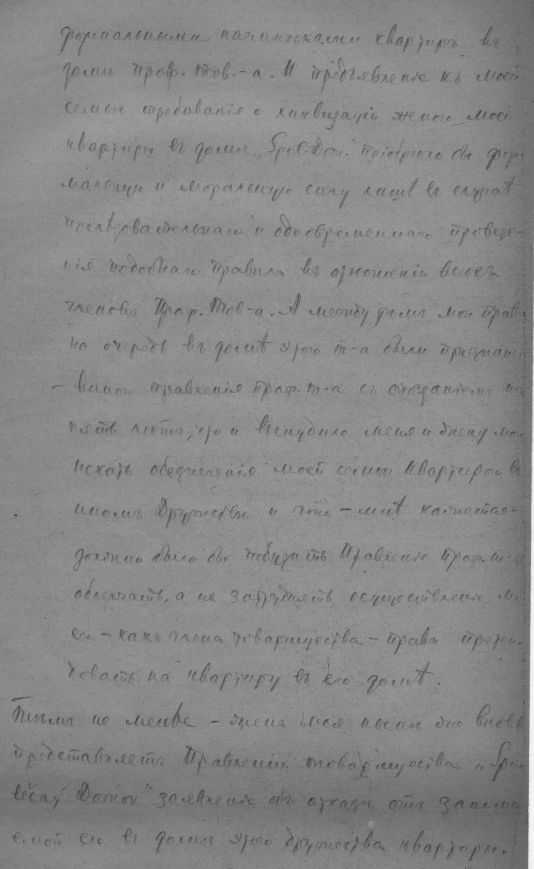 формальными наемниками квартиръ въ
домѣ Проф. Тов.-а. И предъявленіе къ моей
семьѣ требованія о ликвидаціи женою моей
квартиры въ домѣ „ пріобрѣло бы фор-
мальную и моральную силу лишь въ случаѣ
послѣдовательнаго и одновременнаго проведе-
нія подобнаго правила въ отношеніи всѣхъ
членовъ Проф. Тов-а. А между тѣмъ мои права
на очередь въ домѣ этого т-а были признаны
правленія Проф. т-а съ опозданіемъ на
пять лѣтъ, что и вынудило меня и жену мою
искать обезпеченія моей семьи квартирою въ
иномъ Дружествѣ и что – мнѣ кажется –
должно было бы побудить Правленіе Проф. т-а
облегчать, а не затруднять осуществленіе мо-
его – какъ члена товарищества – права претен-
довать на квартиру въ его домѣ.
Тѣмъ не менѣе – жена моя нынѣ же вновь
представляетъ Правленію товарищества „
Домов" заявленіе объ отказѣ отъ занима-
емой ею въ домѣ этого дружества квартиры.